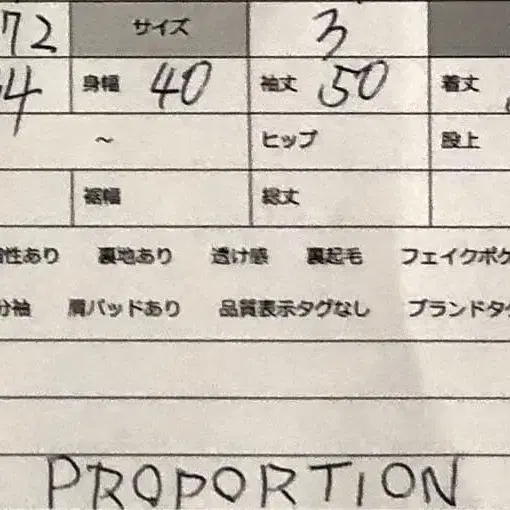 72 サイズ 3
4 身幅 40 袖丈 50 着丈
～ ヒップ 股上
裾幅 総丈
性あり 裏地あり 透け感 裏起毛 フェイクポケ
分袖 肩パッドあり 品質表示タグなし ブランドタグ
PROPORTION